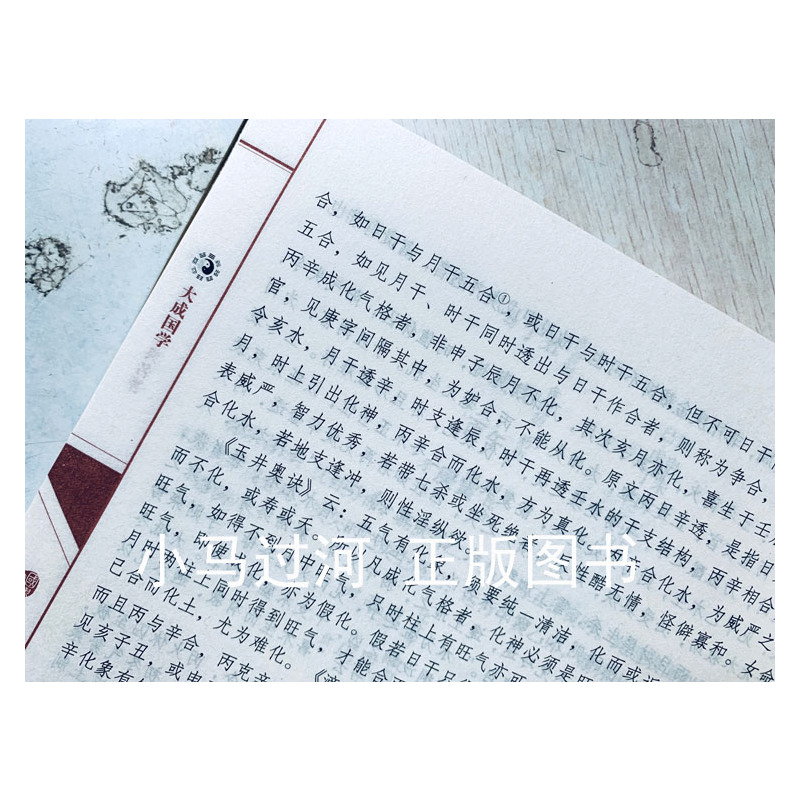 大成国学
合，如日干与月干五合①，或日干与时干五合，但不可日干
五合，如见月干、时干同时透出与日干作合者，则称为争合，
丙辛成化气格者，非申子辰月不化，其次亥月亦化，喜生于壬
官，见庚字间隔其中，为妒合，不能从化。原文丙日辛透，是指日
令亥水，月干透辛，时支逢辰，时干再透壬水的干支结构，丙辛相合
月，时上引出化神，丙辛合而化水，方为真化。合化水，为威严之
表威严，智力优秀，若带七杀或坐死绝 性酷无情，怪僻寡和。女命
合化水，若地支逢冲，则性淫纵欲
《玉井奥诀》云：五气有 须要纯一清洁，化而或
而不化，或寿或夭 凡成化气格者，化神必须是旺
旺气，如得不到 中 气，只时柱上有旺气亦可
旺气， 化 亦为假化。假若日干只
月时两柱上同时得到旺气，才能合
己合而化土，尤为难化。
而且丙与辛合，丙克辛
见亥子丑，或申
辛化象有
小马过河 正版图书